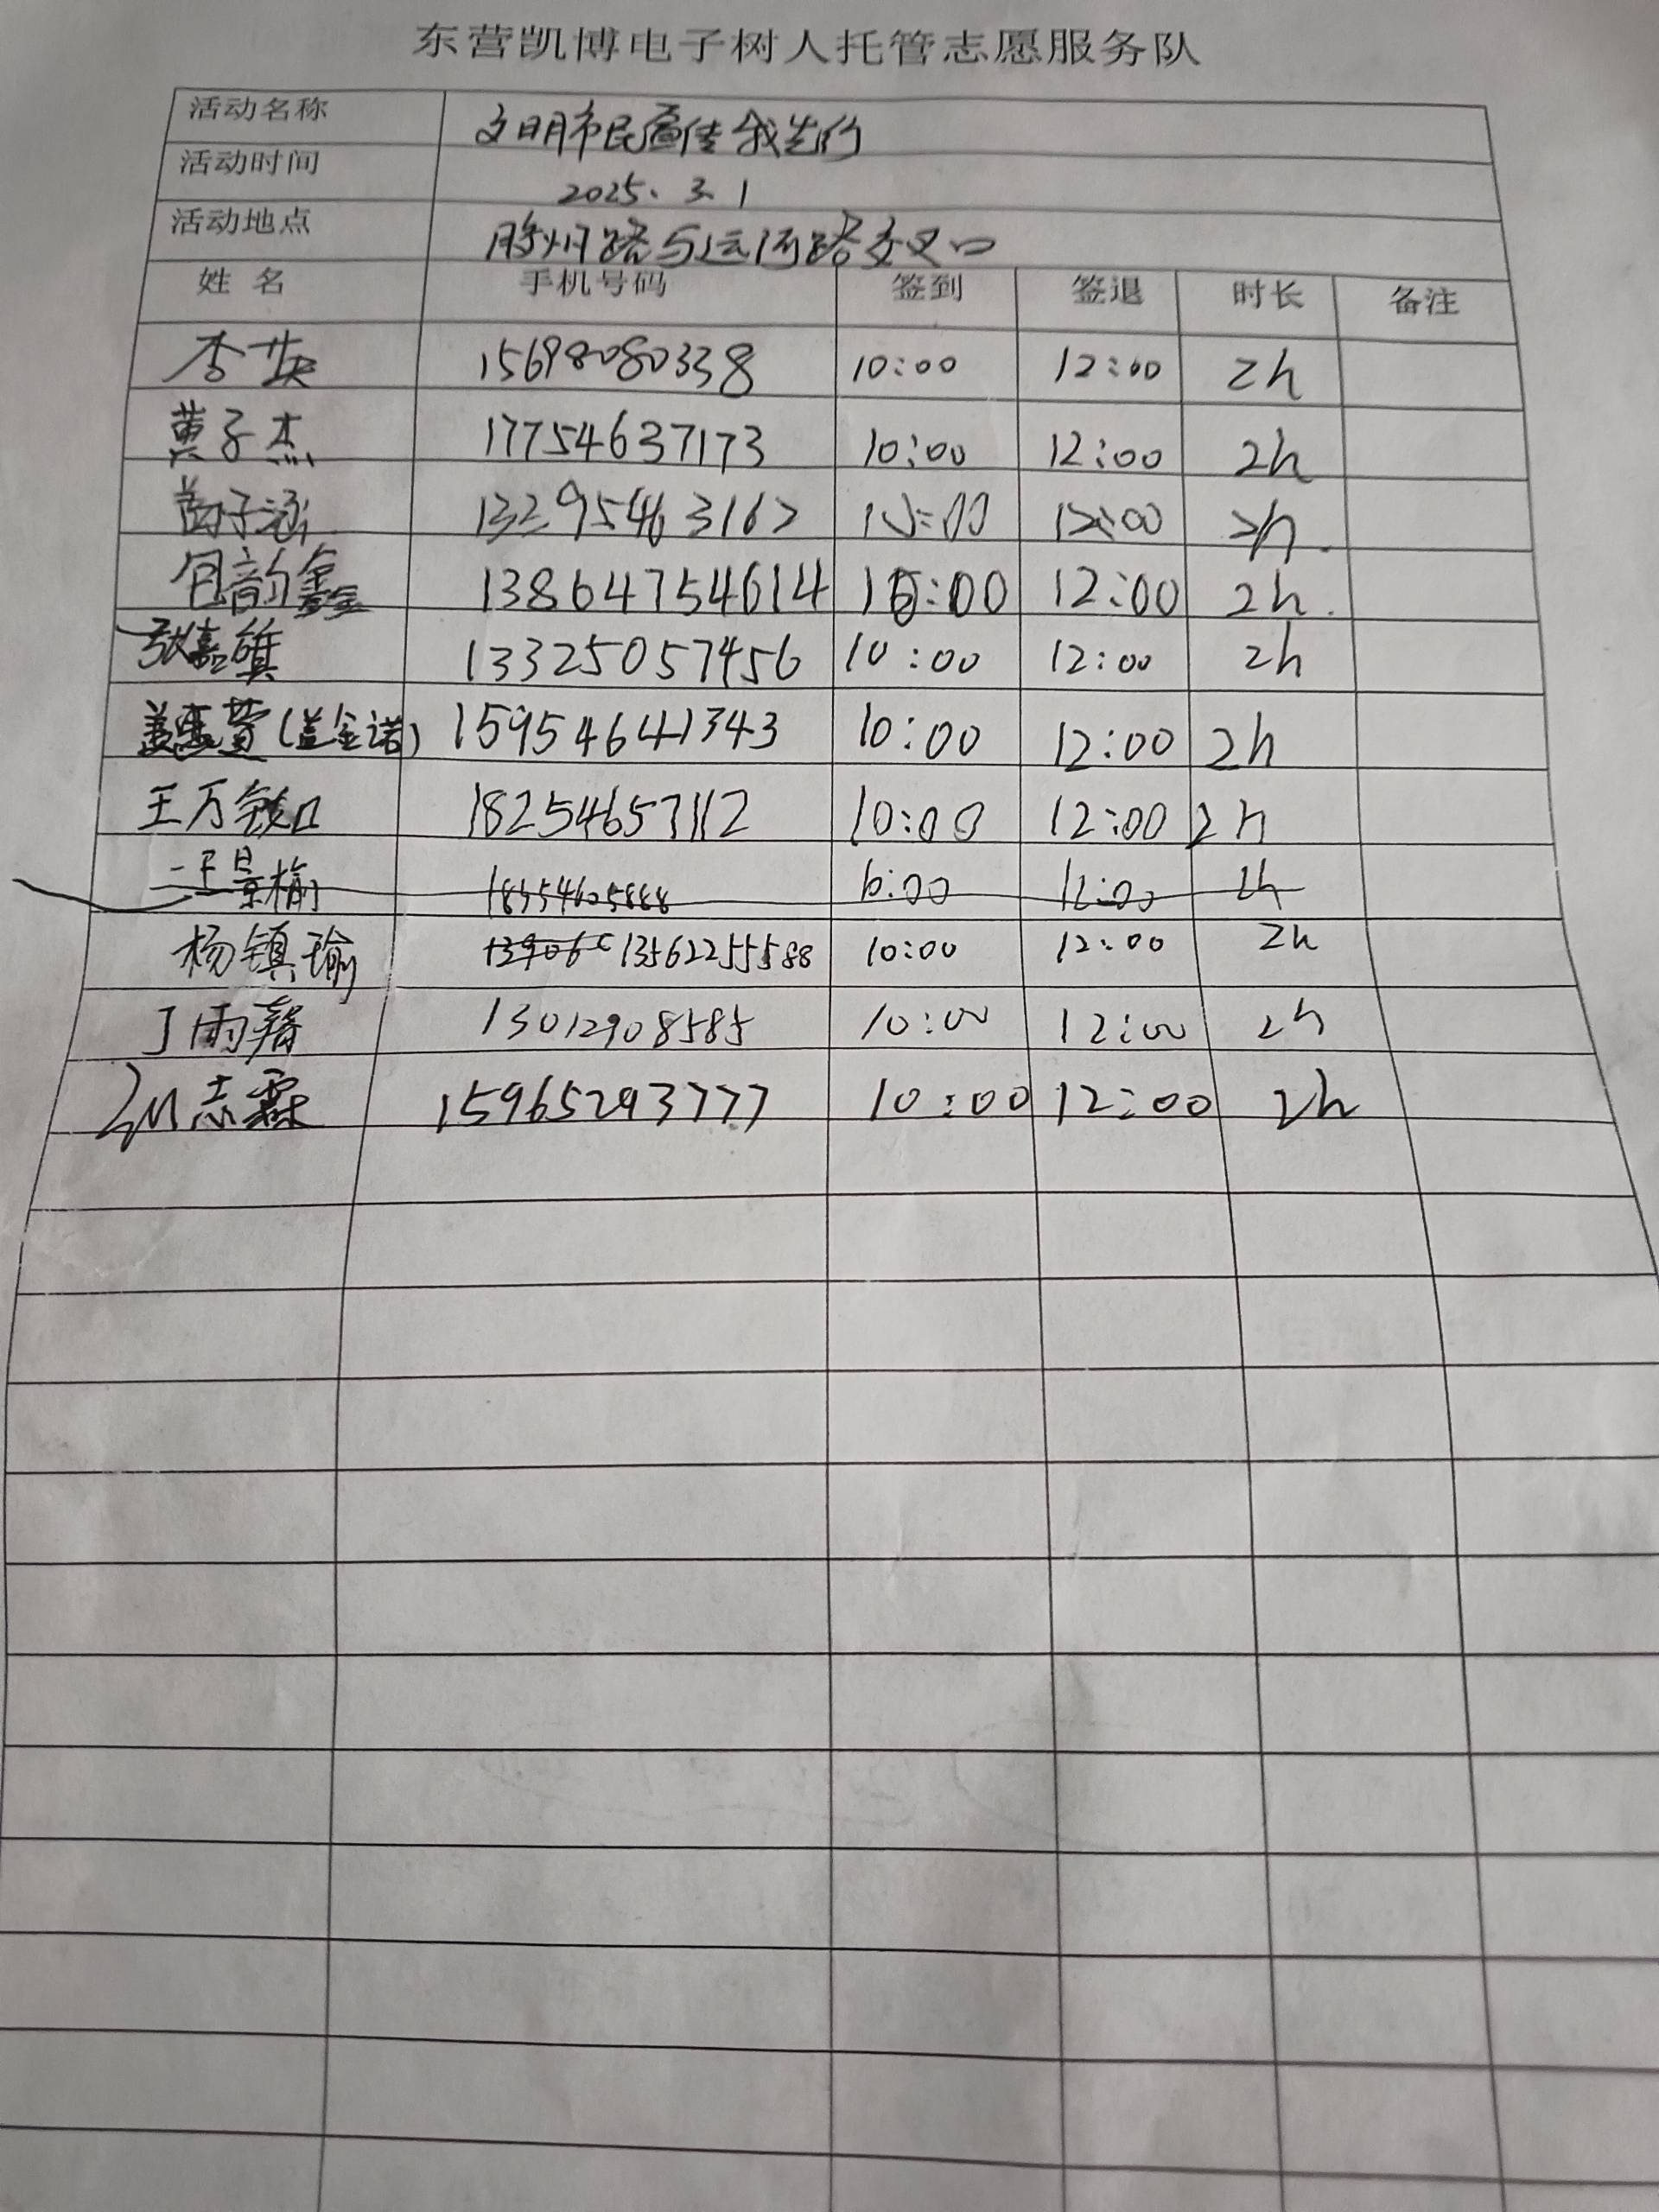 东营凯博电子树人托管志愿服务队
活动名称 文明市民宣传我先行
活动时间 2025. 3. 1
活动地点 胶州路与运河路交叉口
姓 名 手机号码 签到 签退 时长 备注
李英 15698080338 10:00 12:00 2h
黄子杰 17754637173 10:00 12:00 2h
苗子涵 13295463167 10:00 12:00 2h.
包韵鑫 13864754614 10:00 12:00 2h.
张嘉 13325057456 10:00 12:00 2h
(盖金诺) 15954641343 10:00 12:00 2h
王万 18254657112 10:00 12:00 2h
王景榆 18354605888 10:00 12:00 2h
杨镇瑜 139066 13562255588 10:00 12:00 2h
丁雨 13012908585 10:00 12:00 2h
志霖 15965293777 10:00 12:00 2h